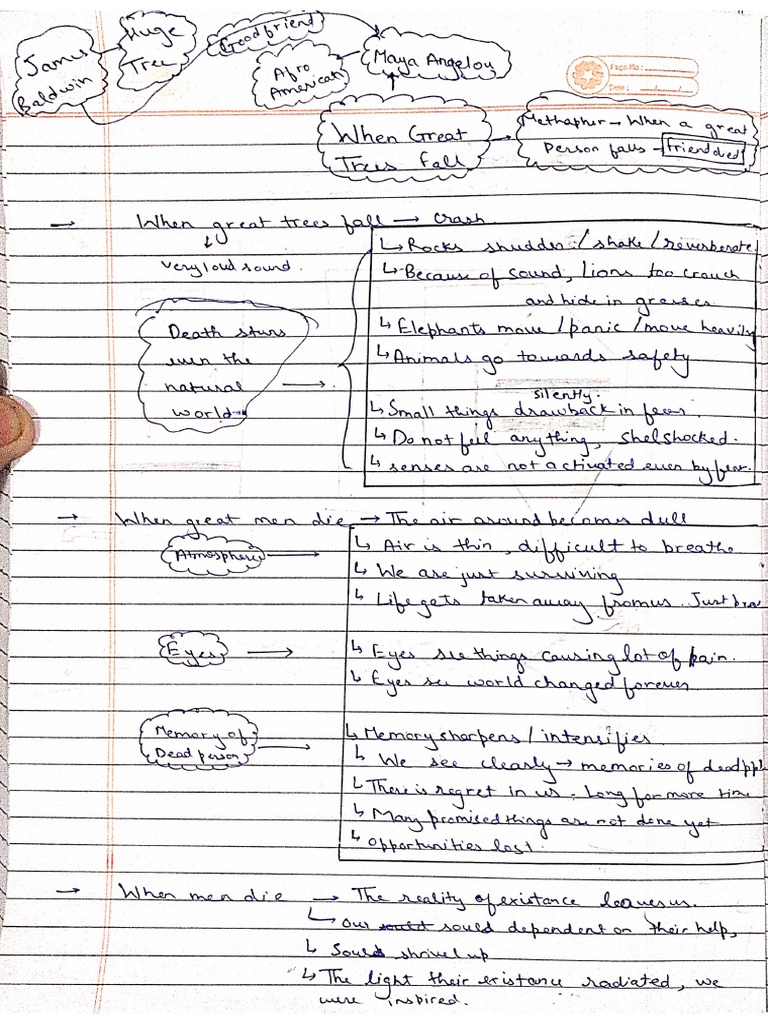 James
Baldwin
Huge
Tree
Good friend
Afro
American
Maya Angelou
Page No :
Date :
When Great
Trees fall
Methapher → When a great
Person falls → friend died
→ When great trees fall → crash
↓
very loud sound.
Death sturs
even the
natural
world →
↳ Rocks shudder / shake / reverberate
↳ Because of sound, Lions too crouch
and hide in grasses
↳ Elephants move / panic / move heavily
↳ Animals go towards safety
silently.
↳ Small things drawback in fear.
↳ Do not feel anything, shelshocked.
↳ senses are not activated even by fear.
→ When great men die → The air around becomes dull
Atmosphere →
↳ Air is thin, difficult to breathe
↳ We are just surviving
↳ Life gets taken away from us. Just
Eyes →
↳ Eyes see things causing lot of pain.
↳ Eyes see world changed forever
Memory of
Dead person →
↳ Memory sharpens / intensifies.
↳ We see clearly → memories of dead ppl
↳ There is regret in us. Long for more time
↳ Many promised things are not done yet
↳ opportunities lost.
→ When men die → The reality of existance leaves us.
↳ Our sould dependent on their help,
↳ Sould shrivel up
↳ The light their existance radiated, we
were inspired.